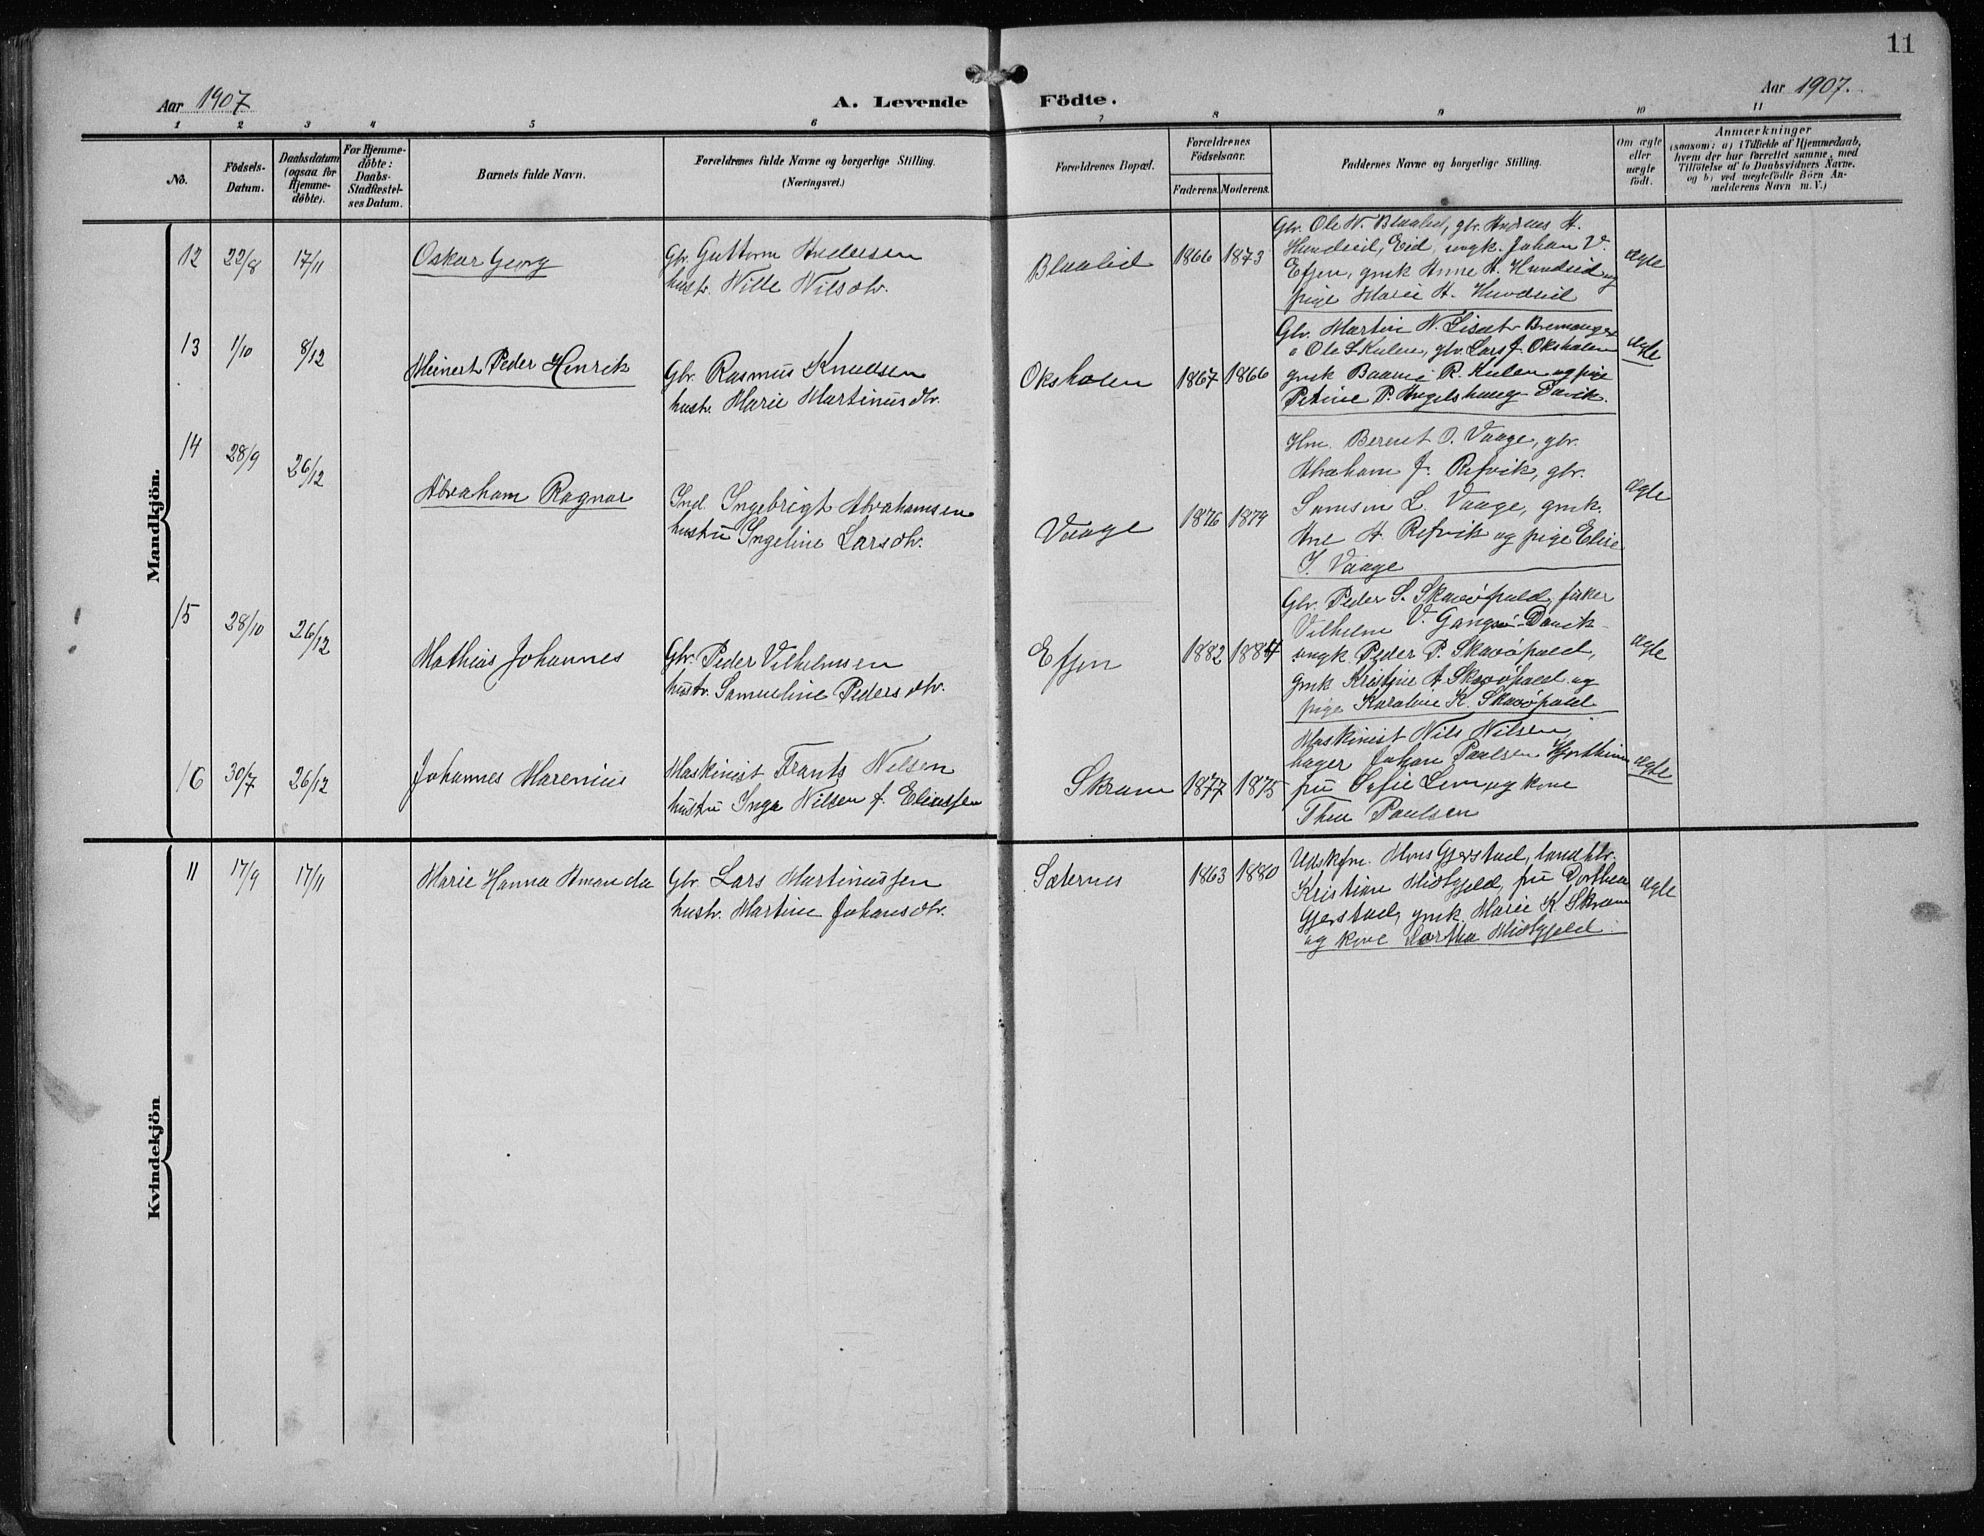 11
Aar 1907
A. Levende
Födte.
Aar 1907.
1 2 3 4 5 6 7 8 9 10 11
No.
Födsels-
Datum.
Daabsdatum
(ogsaa for
Hjemme-
döbte).
For Hjemme-
döbte:
Daabs-
Stadfæstel-
ses Datum.
Barnets fulde Navn.
Forældrenes fulde Navne og borgerlige Stilling.
(Næringsvei.)
Forældrenes Bopæl.
Forældrenes
Födselsaar.
Faderens. Moderens.
Faddernes Navne og borgerlige Stilling.
Om ægte
eller
uægte
födt.
Anmærkninger
(saasom: a) i Tilfælde af Hjemmedaab,
hvem der har forrettet samme, med
Tilföielse af to Daabsvidners Navne,
og b) ved uægtefödte Börn An-
melderens Navn m. V.)
Mandkjön.
12 22/8 17/11
Oskar Georg
Gbr. Guttorm Andersen
hustr. Nille Nilsdtr.
Blaalid 1866 1873
Gbr. Ole N. Blaalid, gbr. Andreas A.
Hundeid, Eid, ungk. Johan V.
Efjen, gmk Anne A. Hundeid og
pige Marie A. Hundeid
ægte
13 1/10 8/12
Meinert Peder Henrik
Gbr. Rasmus Knudsen
hustr. Marie Martinusdtr.
Oksholen 1867 1866
Gbr. Martin N. Bremanger
Ole S. Kulen, gbr. Lars J. Oksholen
gmk R. Kulen og pige
Petrine P. Davik.
ægte
14 28/9 26/12
Abraham Ragnar
Ind. Ingebrigt Abrahamsen
hustru Ingeline Larsdtr.
Vaage 1876 1879
Hm. Berent O. Vaage, gbr.
Abraham J. Refvik, gbr.
Samson L. Vaage, gmk.
Ane A. Refvik og pige Elise
I. Vaage
ægte
15 28/10 26/12
Mathias Johannes
Gbr. Peder Vilhelmsen
hustr. Samueline Pedersdtr.
Efjen 1882 1884
Gbr. Peder S. Skavøpold, fisker
Vilhelm V. Gangsø Davik
ungk. Peder P. Skavøpold,
gmk Kristine A. Skavøpold og
pige Karoline K. Skavøpold
ægte
16 30/7 26/12
Johannes Marenius
Maskinist Frants Nilsen
hustru Inga Nilsen f. Eliassen
Skram 1877 1875
Maskinist Nils Nilsen,
bager Johan Paulsen
fru Sofie Lem og kone
Thea Paulsen
ægte
Kvindekjön
11 17/9 17/11
Marie Hanna Amanda
Gbr. Lars Martinussen
hustr. Martine Johansdtr.
Sæternes 1863 1880
Udskfm. Mons Gjerstad, landhdlr.
Kristian Midtgjeld, fru Dorthea
Gjerstad, gmk. Marie K. Skram
og kone Martha Midtgjeld
ægte